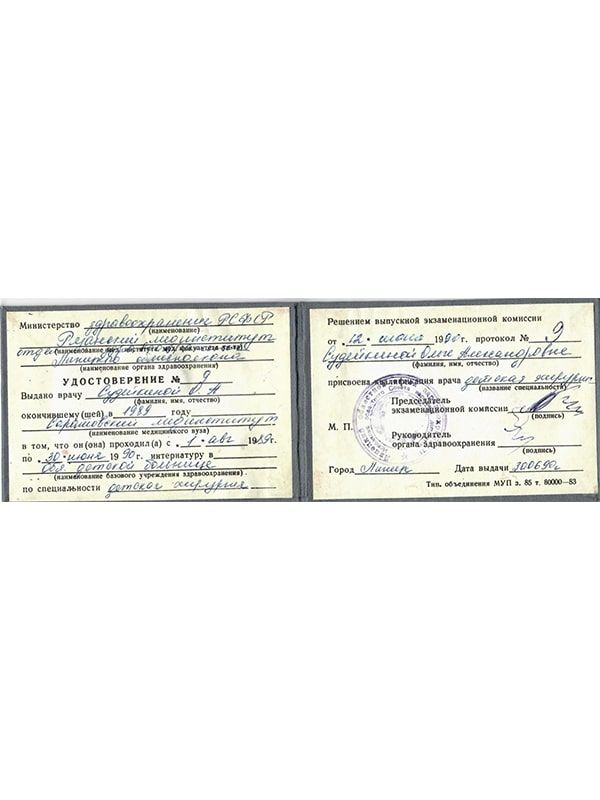 Министерство здравоохранения РСФСР
(наименование)
Рязанский мединститут
отдел
(наименование института мух факультета ин-та)
(наименование органа здравоохранения)
УДОСТОВЕРЕНИЕ № 9
Выдано врачу Судейкиной О. А
(фамилия, имя, отчество)
окончившему(шей) в 1989 году
мединститут
(наименование медицинского вуза)
в том, что он(она) проходил(а) с 1 · авг 1989г.
по 30 · июня 1990 г. интернатуру в
детской больнице
(наименование базового учреждения здравоохранения)
по специальности детская хирургия
Решением выпускной экзаменационной комиссии
от 12 · июня 1990 г. протокол № 9
Судейкиной Ольге Александровне
(фамилия, имя, отчество)
присвоена квалификация врача детская хирургия
(название специальности)
Председатель
экзаменационной комиссии
(подпись)
М. П.
Руководитель
органа здравоохранения
(подпись)
Город Дата выдачи 300690г
Тип. объединения МУП з. 85 т. 80000—83